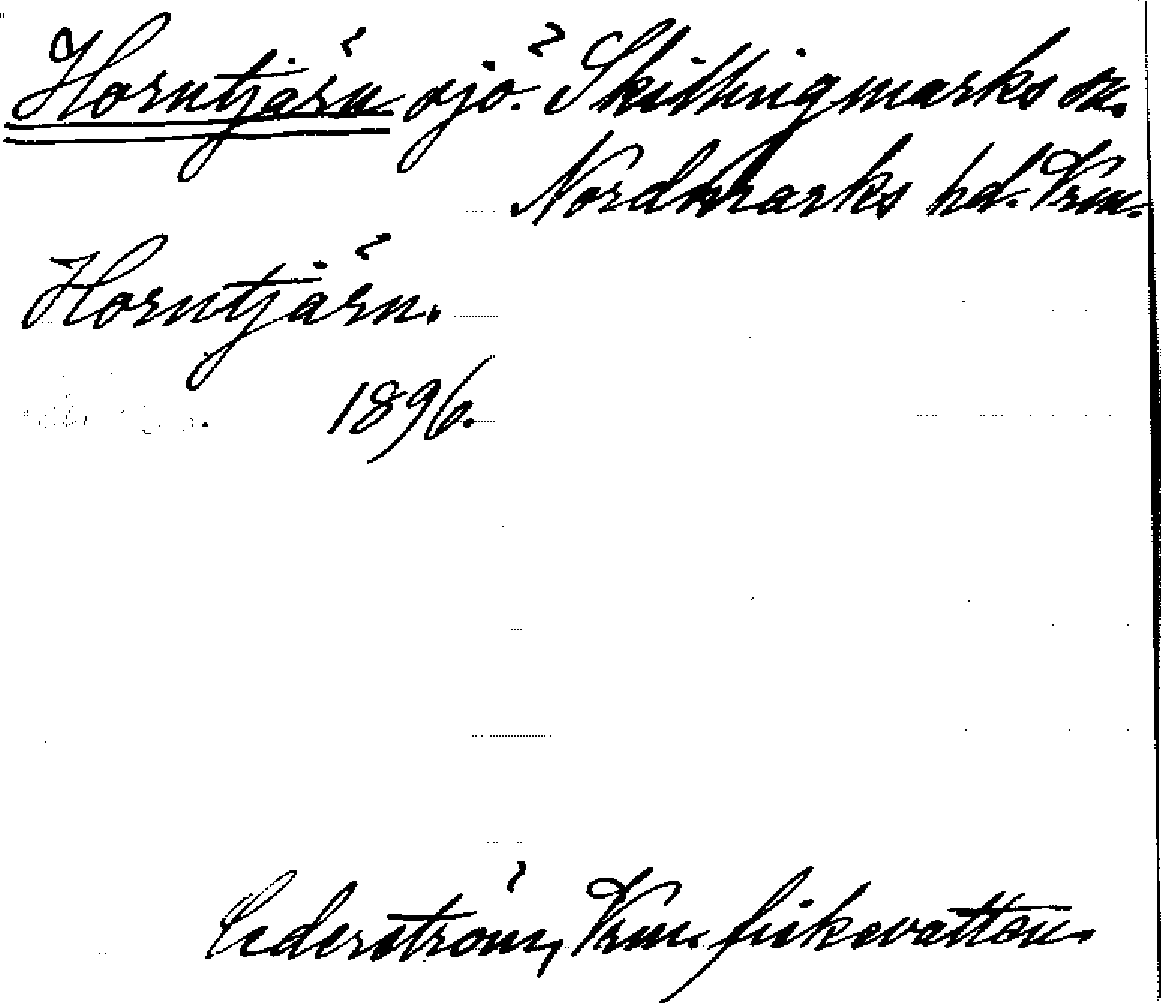 Horntjärn sjö. Skillingmarks sn.
Nordmarks hd. Vrm.
Horntjärn.
1896.
Cederström, Vrm. fiskevatten.